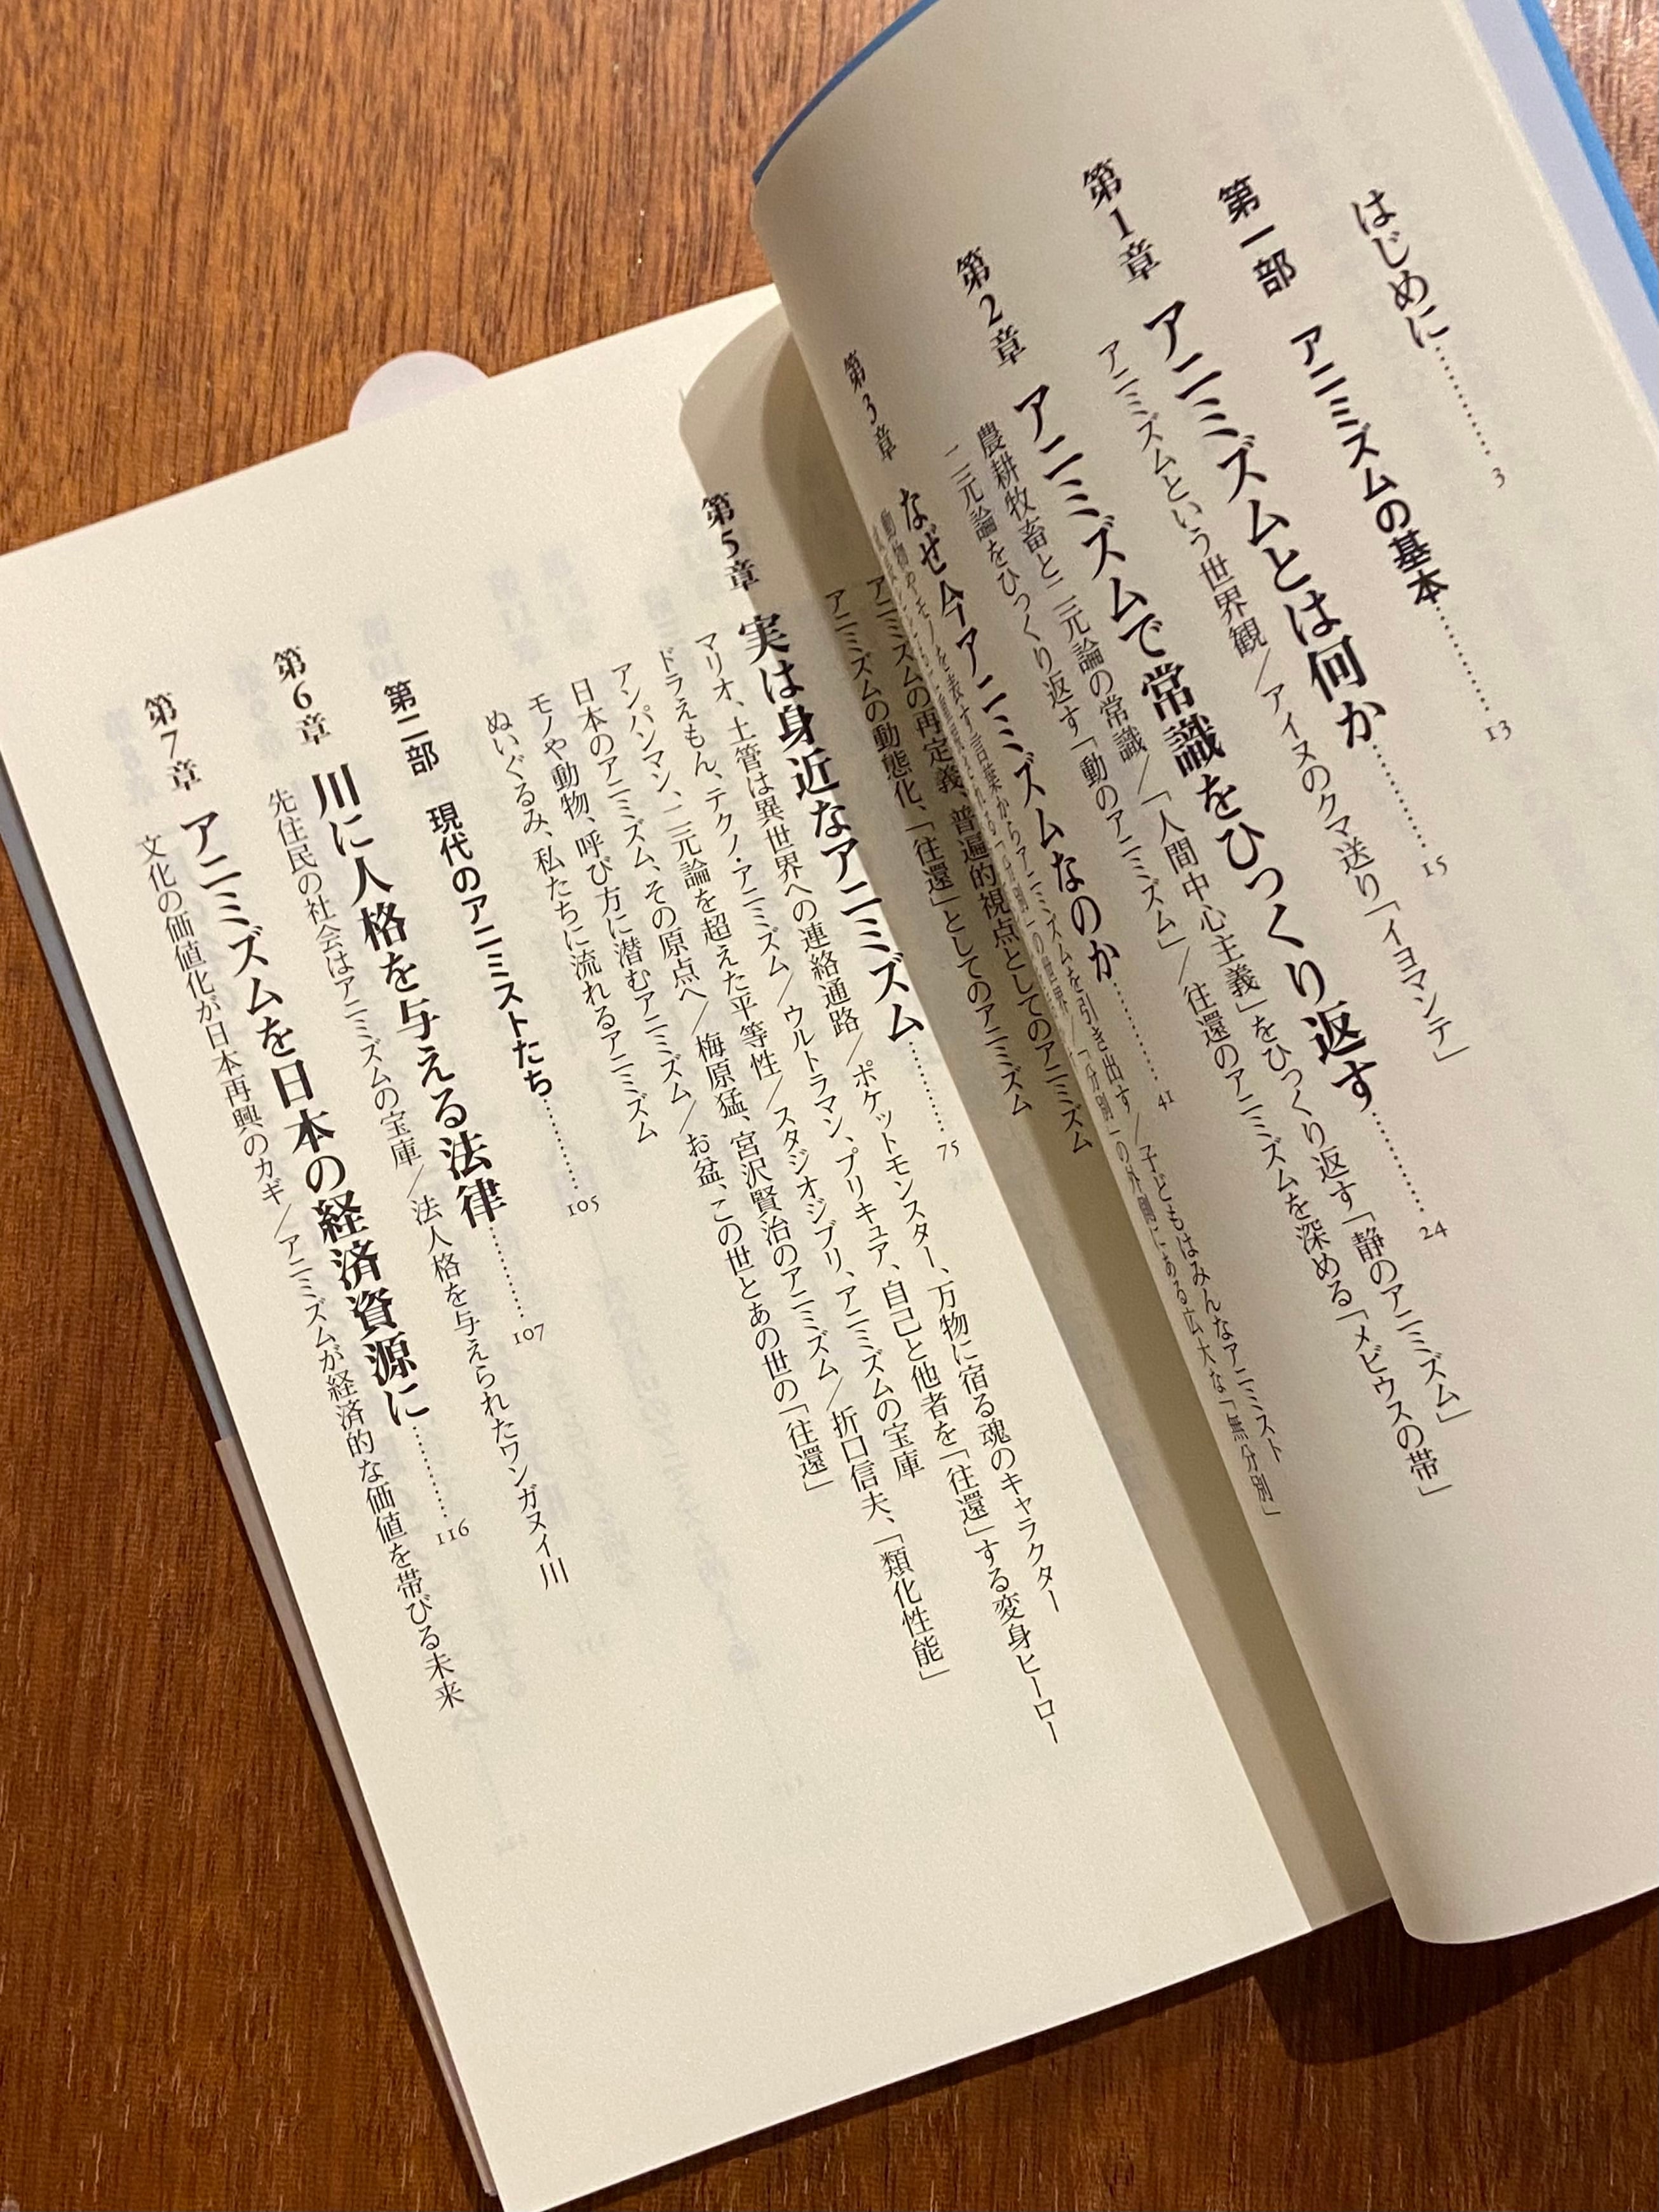 はじめに…………3
第一部 アニミズムの基本…………13
第1章 アニミズムとは何か…………15
アニミズムという世界観/アイヌのクマ送り「イヨマンテ」
第2章 アニミズムで常識をひっくり返す…………24
農耕牧畜と二元論の常識/「人間中心主義」をひっくり返す「静のアニミズム」
二元論をひっくり返す「動のアニミズム」/往還のアニミズムを深める「メビウスの帯」
第3章 なぜ今アニミズムなのか…………41
動物やモノを表す言葉からアニミズムを引き出す/子どもはみんなアニミスト
「分別」の世界/「分別」の外側にある広大な「無分別」
アニミズムの再定義、普遍的視点としてのアニミズム
アニミズムの動態化、「往還」としてのアニミズム
第5章 実は身近なアニミズム…………75
マリオ、土管は異世界への連絡通路/ポケットモンスター、万物に宿る魂のキャラクター
ドラえもん、テクノ・アニミズム/ウルトラマン、プリキュア、自己と他者を「往還」する変身ヒーロー
アンパンマン、二元論を超えた平等性/スタジオジブリ、アニミズムの宝庫
日本のアニミズム、その原点へ/梅原猛、宮沢賢治のアニミズム/折口信夫、「類化性能」
モノや動物、呼び方に潜むアニミズム/お盆、この世とあの世の「往還」
ぬいぐるみ、私たちに流れるアニミズム
第二部 現代のアニミストたち…………105
第6章 川に人格を与える法律…………107
先住民の社会はアニミズムの宝庫/法人格を与えられたワンガヌイ川
第7章 アニミズムを日本の経済資源に…………116
文化の価値化が日本再興のカギ/アニミズムが経済的な価値を帯びる未来